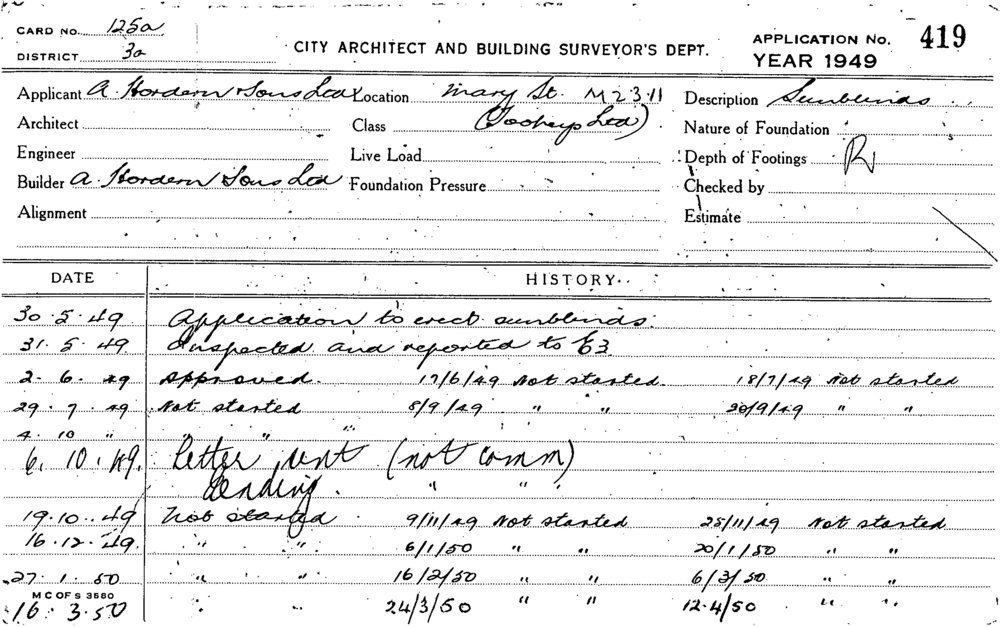 CARD NO. 125a
DISTRICT 3a
CITY ARCHITECT AND BUILDING SURVEYOR'S DEPT.
APPLICATION No. 419
YEAR 1949
Applicant A. Hordern & Sons Ltd Location Mary St. M23.11 Description Sunblinds
Architect Class Ltd) Nature of Foundation
Engineer Live Load Depth of Footings
Builder A. Hordern & Sons Ltd Foundation Pressure Checked by
Alignment Estimate
DATE HISTORY
30.5.49 Application to erect sunblinds.
31.5.49 Inspected and reported to E3
2.6.49 Approved. 17/6/49 Not started. 18/7/49 Not started
29.7.49 Not started 8/9/49 " " 20/9/49 " "
4.10 " " " "
6.10.49. Letter sent (not comm)
Pending. " "
19.10.49 Not started 9/11/49 Not started 25/11/49 Not started
16.12.49. " " 6/1/50 " " 20/1/50 " "
27.1.50 " " 16/2/50 " " 6/3/50 " "
M C OF S 3580
16.3.50 " " 24/3/50 " " 12.4/50 " "